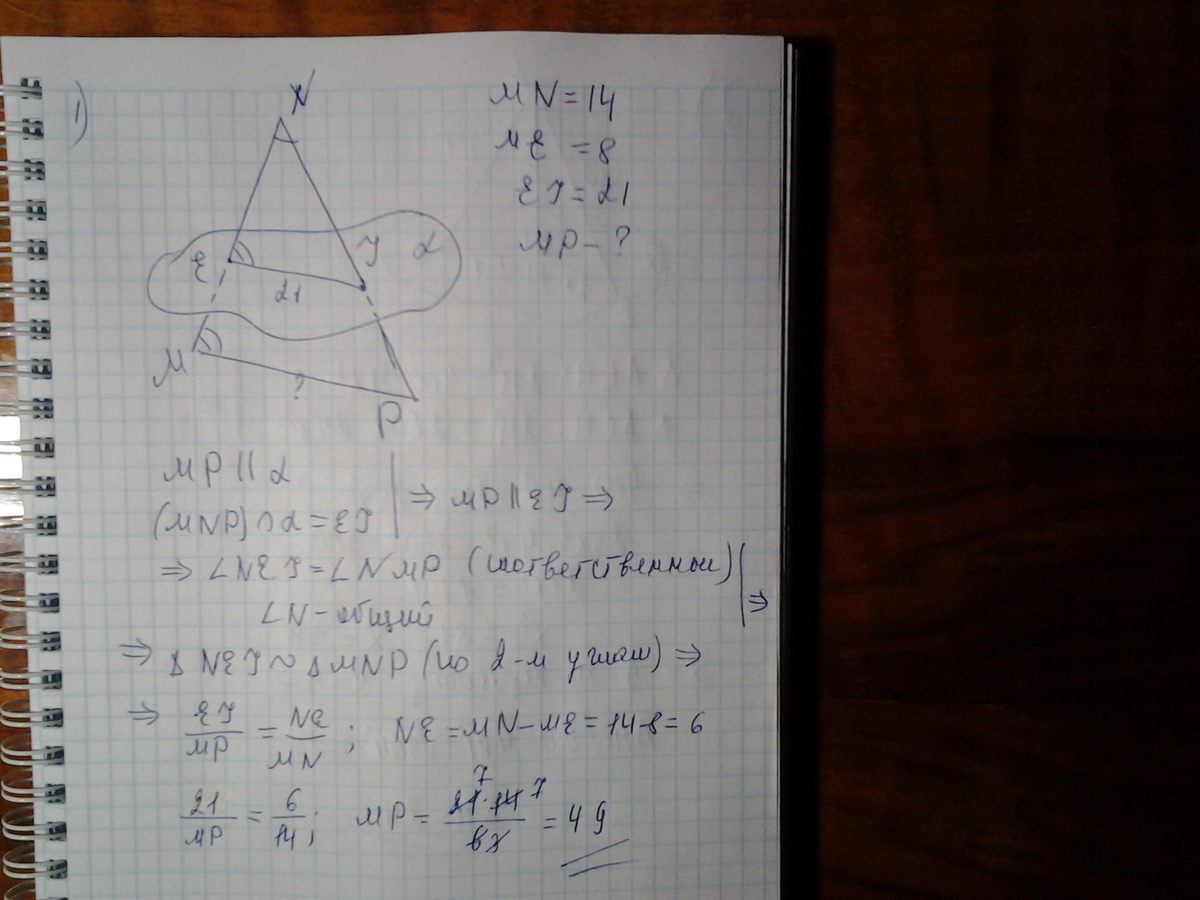 1)
N
MN = 14
ME = 8
EJ = 21
MP - ?
E
J
α
21
M
?
P
MP || α
(MNP) ∩ α = EJ
⇒ MP || EJ ⇒
⇒ ∠NEJ = ∠NMP (соответственные)
∠N - общий
⇒
⇒ Δ NEJ ~ Δ MNP (по 2-м углам) ⇒
⇒ EJ/MP = NE/MN ; NE = MN - ME = 14-8 = 6
21/MP = 6/14 ; MP = 21·14/6 = 49